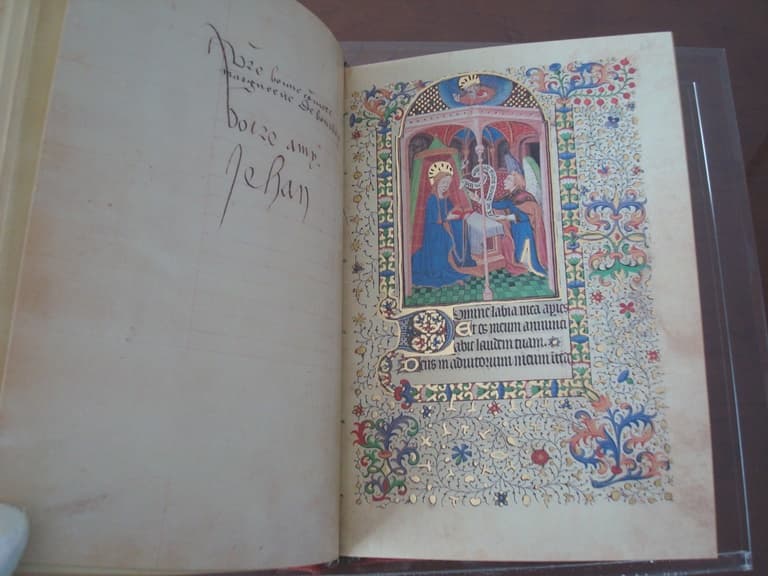 bonne
marguerite de
votre amy
Jehan
Domine labia mea apies
Et os meum annunci
abit laudem tuam.
Deus in adiutorium meum inte